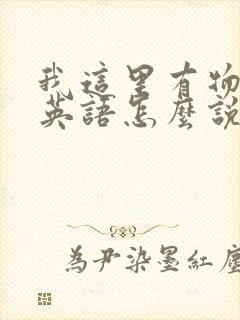 我這里有物
英語怎麼說
為尹染墨紅塵